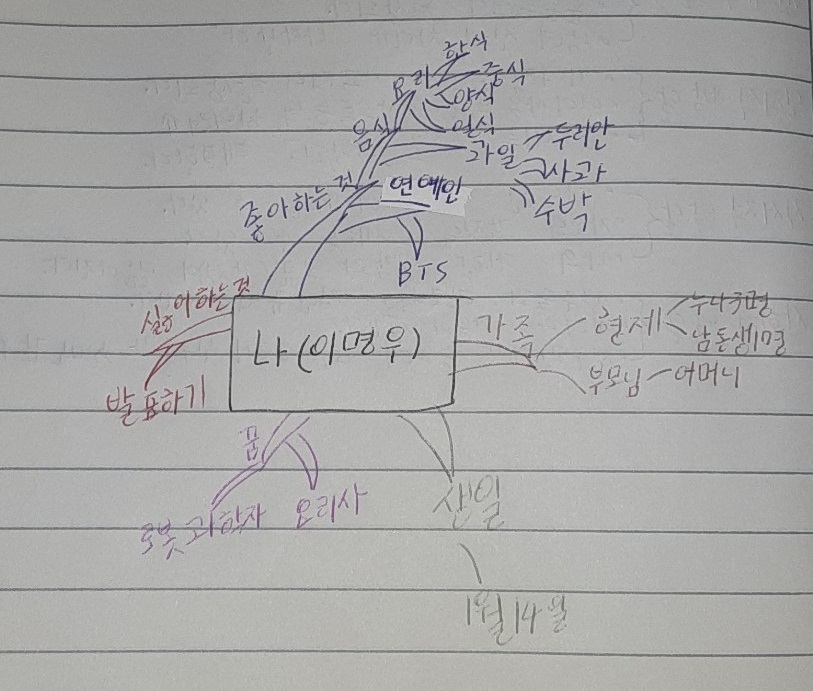 한식
요리
중식
양식
음식
일식
두리안
과일
사과
연예인
수박
좋아하는 것
BTS
싫어하는것
가족
형제
누나 2명
남돈생1명
나(이명우)
부모님
어머니
발표하기
꿈
로봇 과학자
요리사
샌일
1월14일